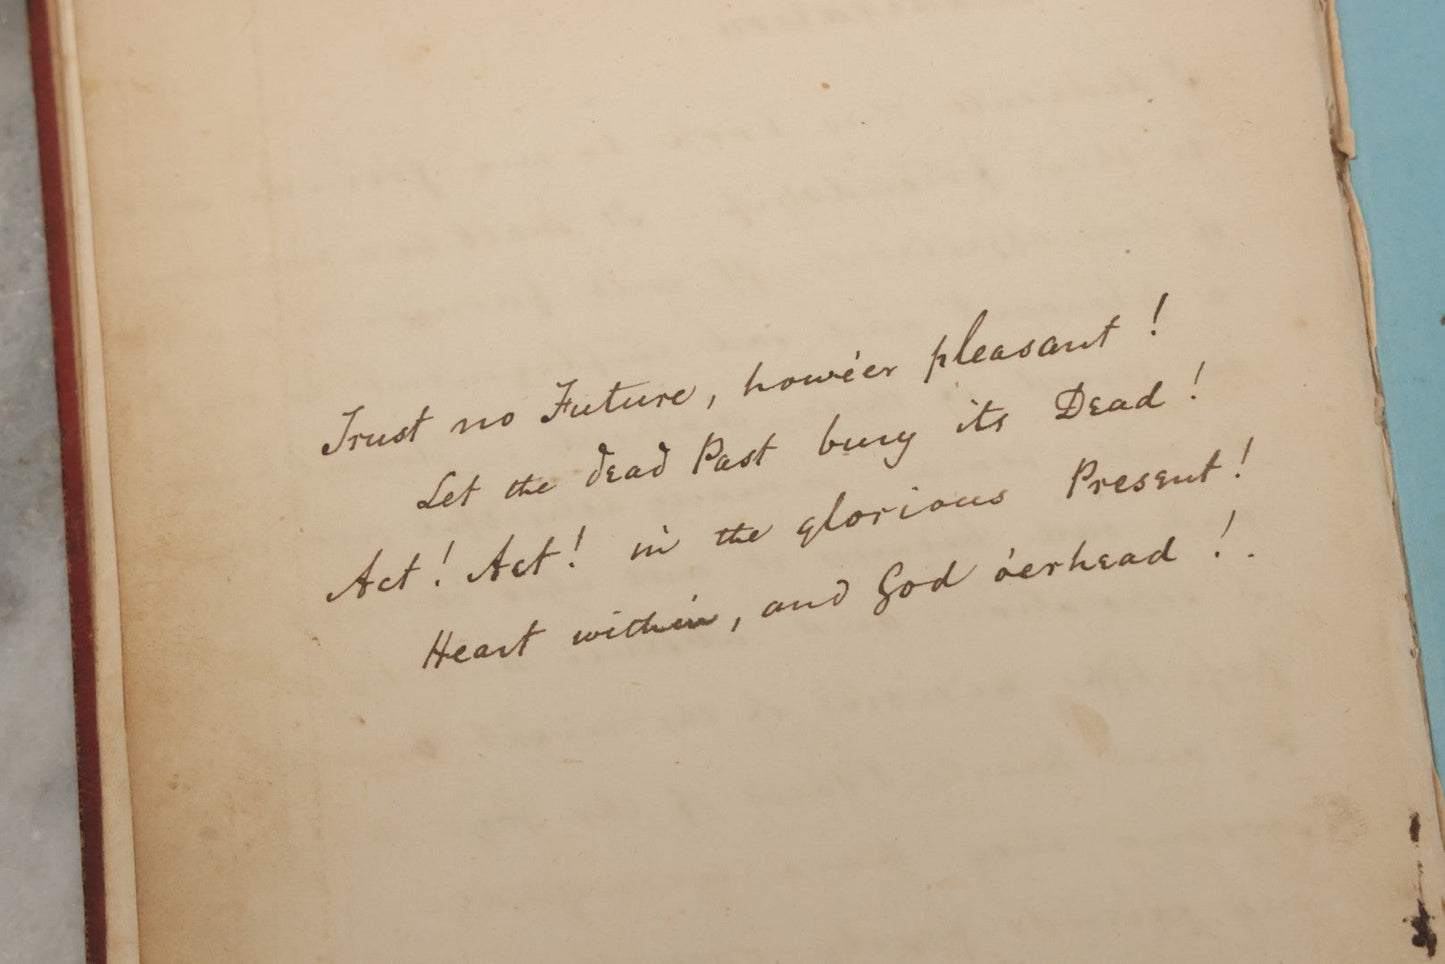 Trust no Future, howe'er pleasant!
Let the dead Past bury its Dead!
Act! Act! in the glorious Present!
Heart within, and God o'erhead!.